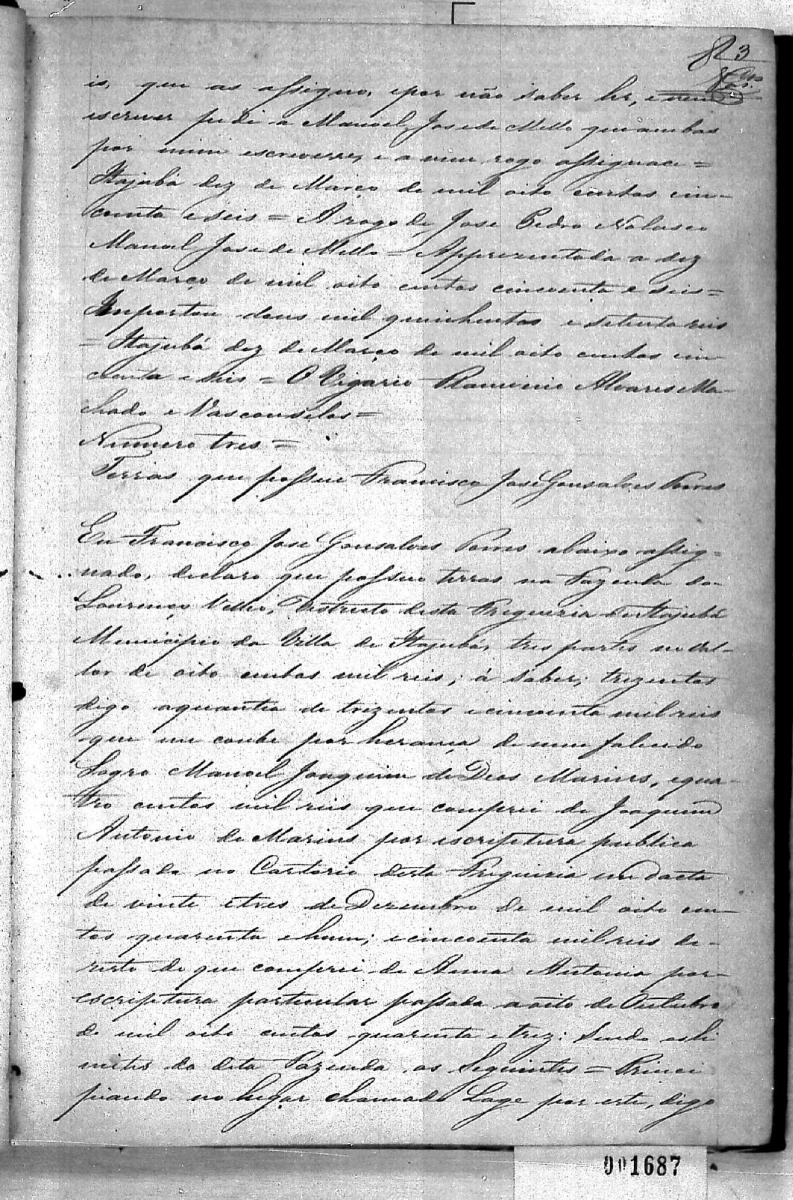 3
is, que as assigno, e por não saber ler, e nem
escrever pedi a Manoel José de Mello que ambas
por mim escrevesse, e a meu rogo assignace =
Itajubá dez de Março de mil oito centos cin-
coenta e seis = A rogo de José Pedro Nolasco
Manoel José de Mello = Apprezentada a dez
de Março de mil oito centos cincoenta e seis =
Importou dous mil quinhentos e setenta reis
= Itajubá dez de Março de mil oito centos cin
coenta e seis = O Vigario Alvares Ma-
chado e Vasconselos =
Numero tres =
Terras que possue Francisco José Gonsalves Torres
Eu Francisco José Gonsalves Torres abaixo assig-
nado, declaro que possuo terras na Fazenda do
Lourenço Velho, Destricto desta Fregueria de Itajubá
Municipio da Villa de Itajubá, tres partes no val-
lor de oito centos mil reis; á saber; trezentos
digo aquantia de trezentos e cincoenta mil reis
que me coube por herança de meu falecido
Sogro Manoel Joaquim de Deos Marins, e qua-
tro centos mil reis que comprei de Joaquim
Antonio de Marins por escriptura publica
passada no Cartorio desta Fregueria em dacta
de vinte e tres de Dezembro de mil oito cen-
tos quarenta e hum; e cincoenta mil reis de
resto de que comprei de Anna Antonia por
escriptura particular passada a oito de Outubro
de mil oito centos quarenta e trez: Sendo os li
mites da dita Fazenda os Seguintes = Princi
piando no lugar chamado Lage por este, digo
001687